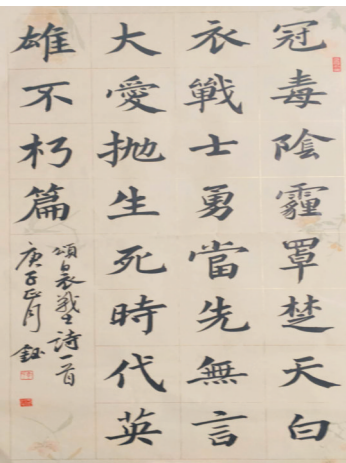 冠毒陰霾罩楚天白
衣戰士勇當先無言
大愛拋生死時代英
雄不朽篇
頌白衣戰士詩一首
庚子正月 鈺